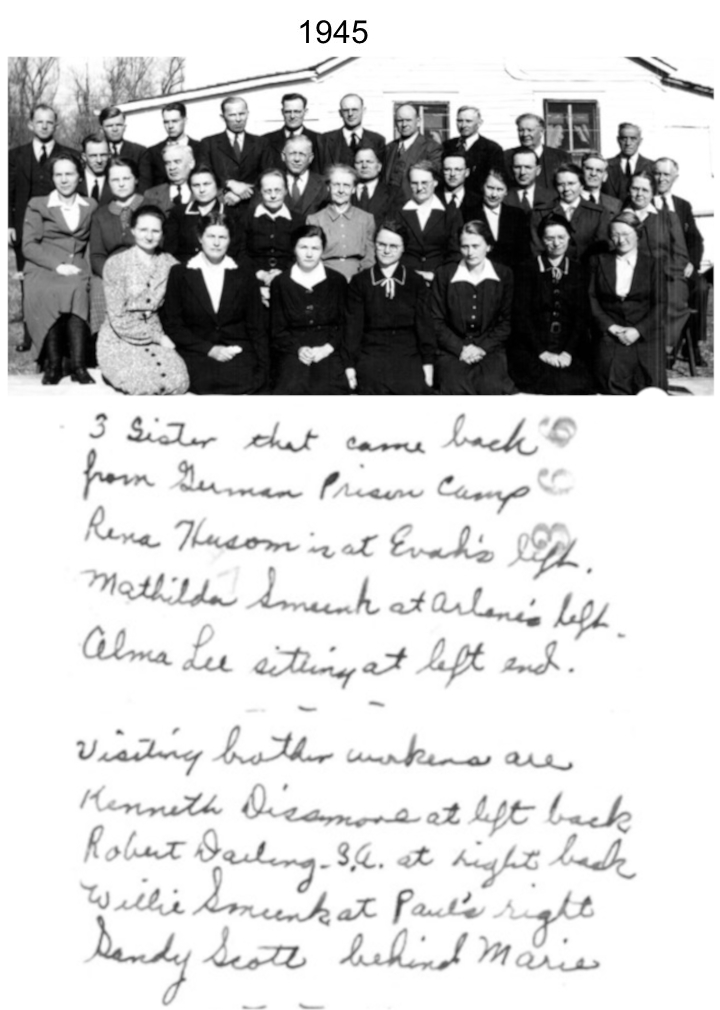 1945
3 Sister that came back
from German Prison Camp
Rena Husom is at Evah's left.
Mathilda Smeenk at Arlene's left.
Alma Lee sitting at left end.
Visiting brother workers are
Kenneth Dissmore at left back
Robert Darling - S.A. at right back
Willie Smeenk at Paul's right
Sandy Scott behind Marie